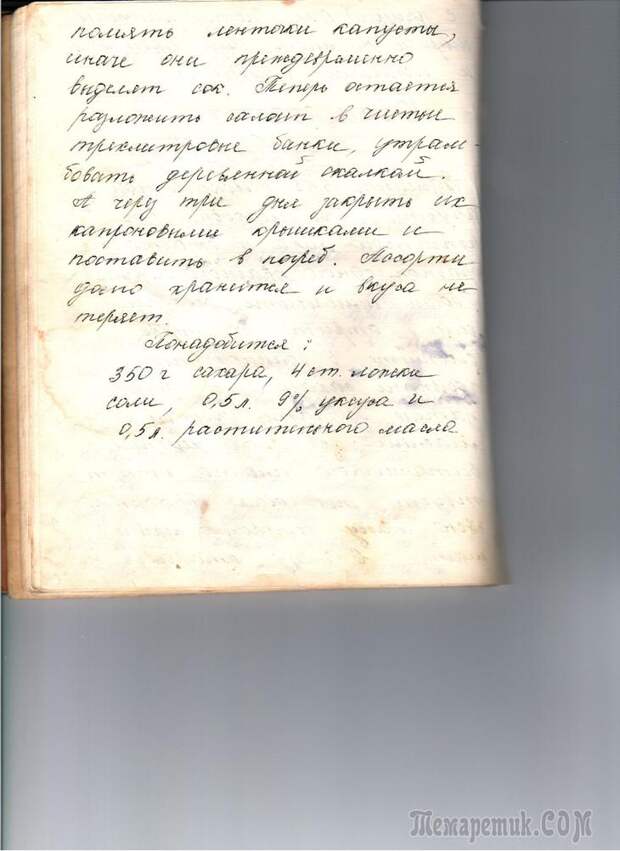 помять ленточки капусты,
иначе они преждевременно
выделят сок. Теперь остается
разложить салат в чистые
трехлитровые банки, утрам-
бовать деревянной скалкой.
А через три дня закрыть их
капроновыми крышками и
поставить в погреб. Ассорти
долго хранится и вкуса не
теряет.
Понадобится:
350 г сахара, 4 ст. ложки
соли, 0,5 л. 9% уксуса и
0,5 л. растительного масла
Темаретик.COM